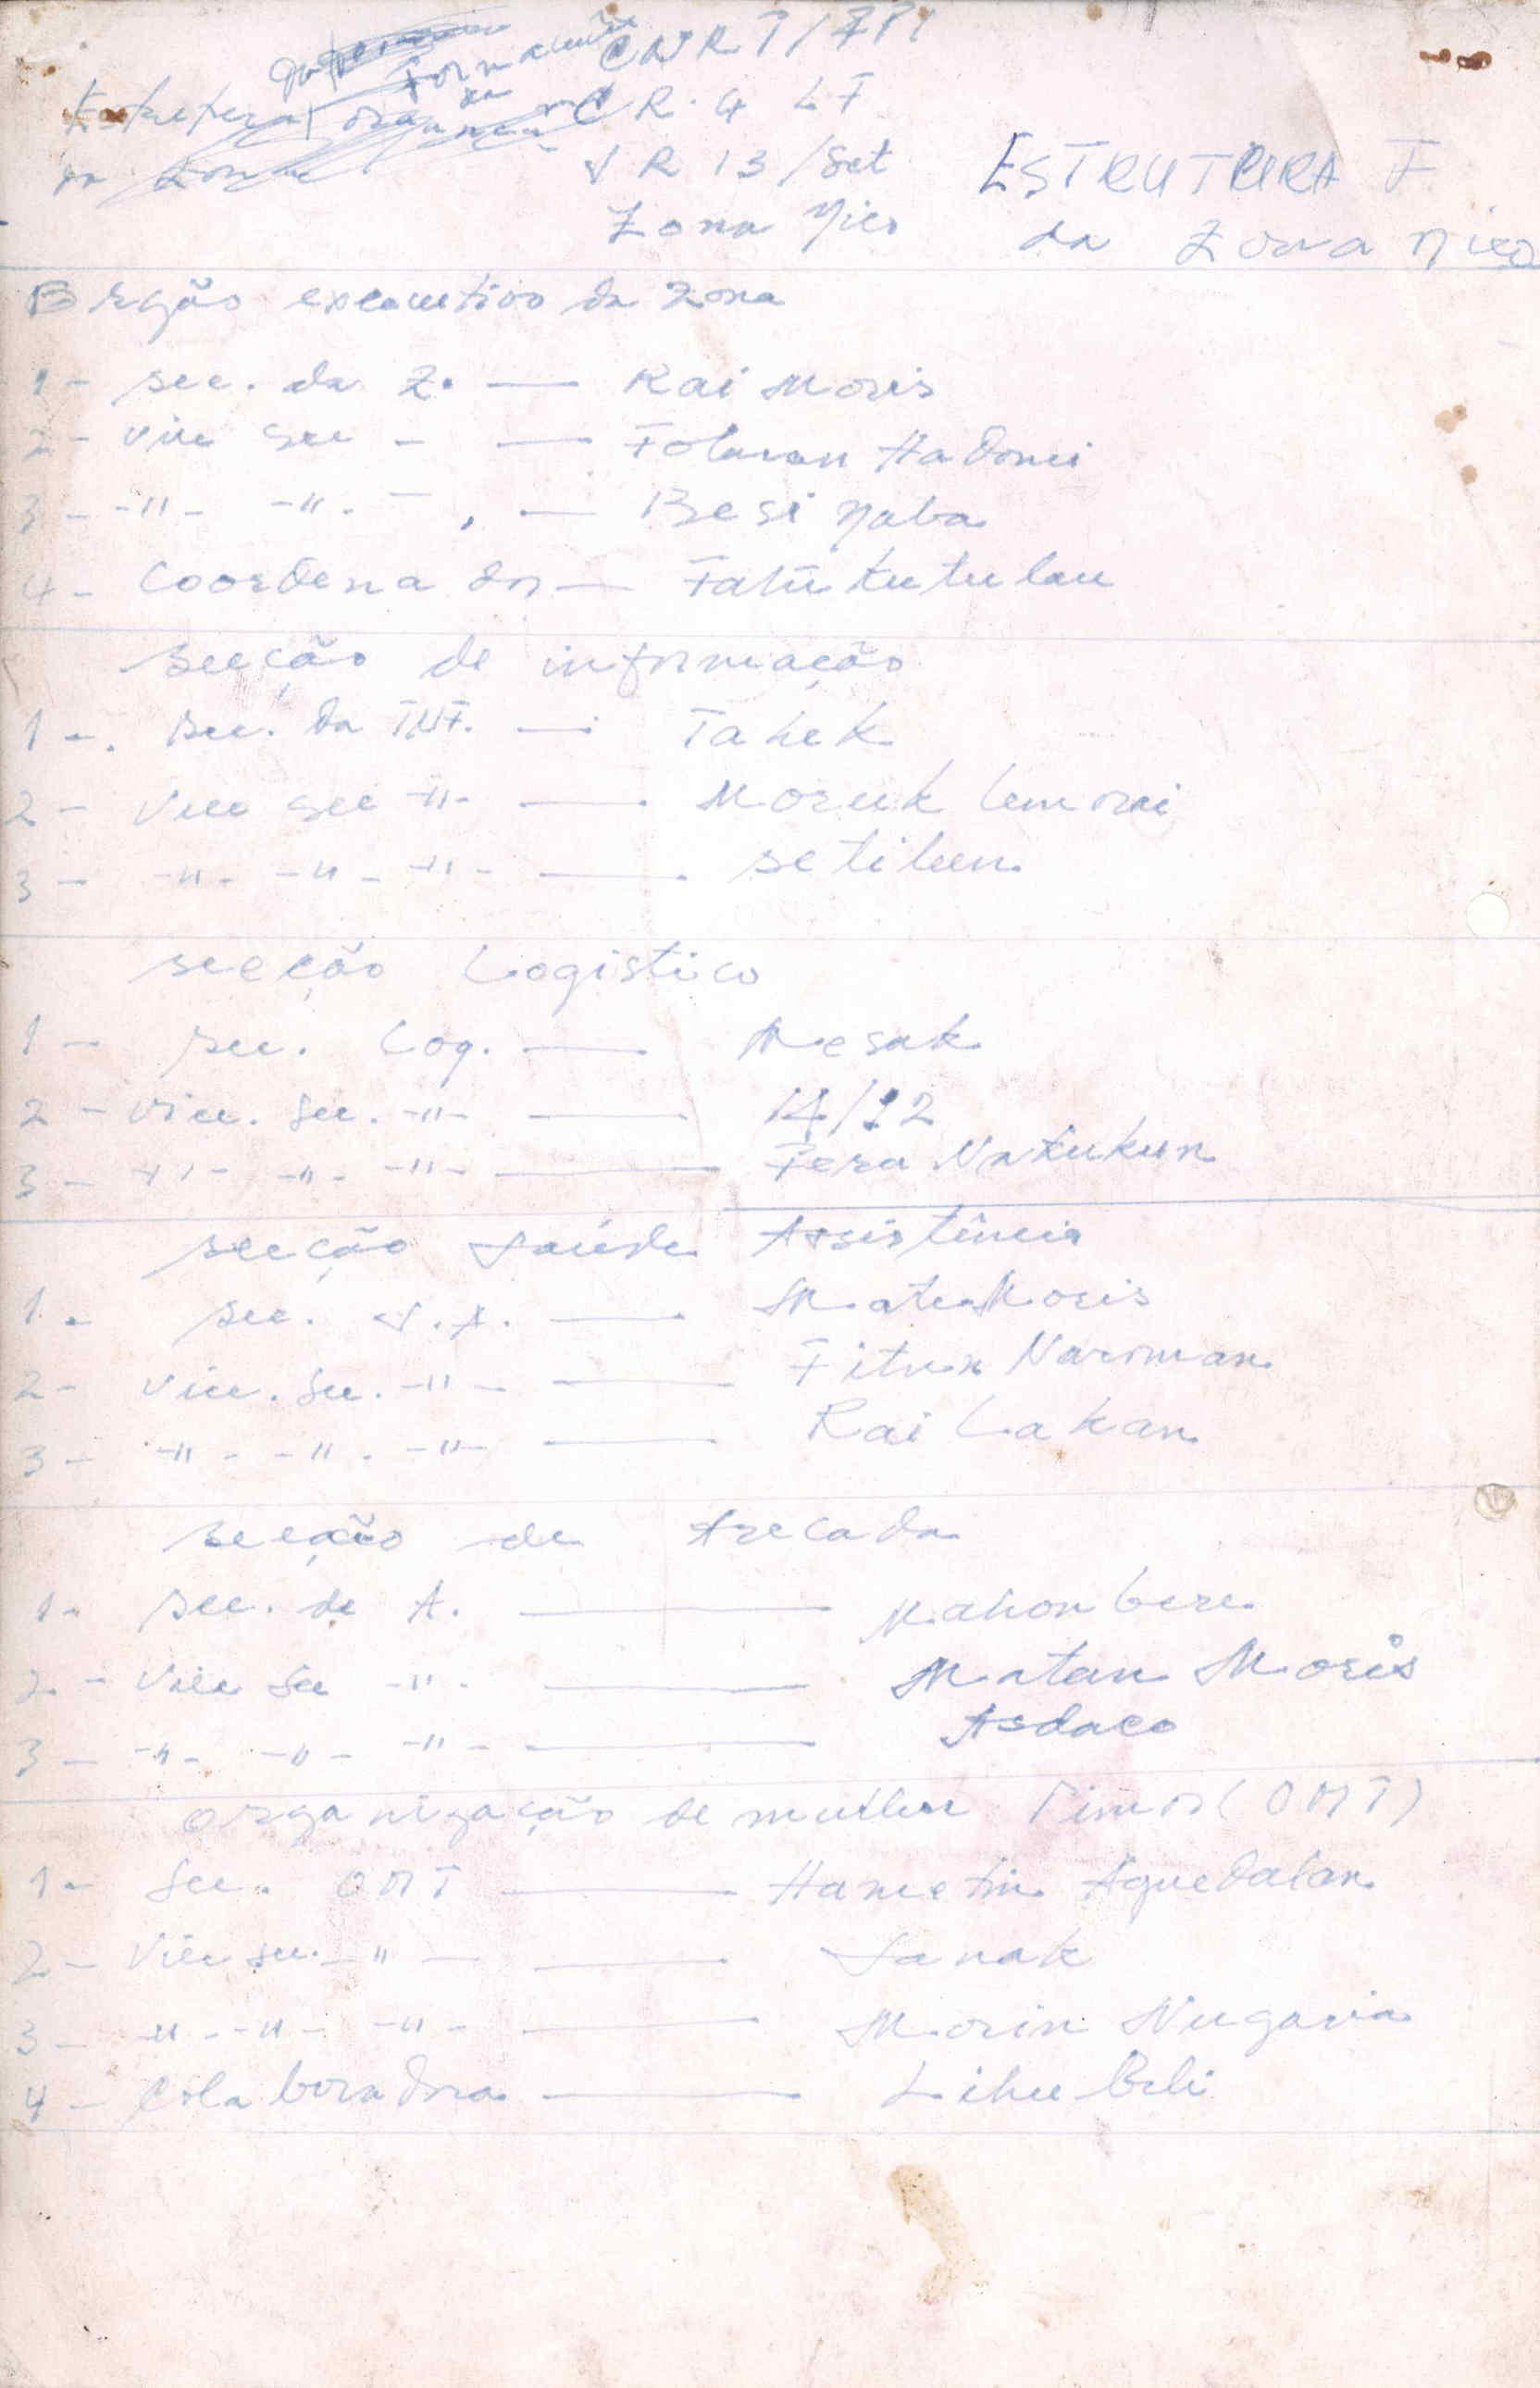 CNRT/FPI
C R. 4 L F
S R 13/Set
Zona Nico
ESTRUTURA F
da Zona Nico
Orgão executivo da Zona
1 - sec. da Z. — Rai Moris
2 - Vice Sec - — Folaran Hadomi
3 - -"- -"- — Besi Naba
4 - Coordenador — Fatu kutulau
secção de informação
1 - sec. da INF. — Tahek
2 - Vice sec -"- — Moruk lemorai
3 - -"- -"- -"- — setileen
secção Logistico
1 - sec. Log. — Mesak
2 - Vice. Sec. -"- — 14/12
3 - -"- -"- -"- — Fera Nakukun
secção Saúde Assistência
1 - sec. S.A. — Mate Moris
2 - Vice. Sec. -"- — Fitun Naroman
3 - -"- -"- -"- — Rai Lakan
secção de Arecada
1 - sec. de A. — Mahon bere
2 - Vice Sec -"- — Matan Moris
3 - -"- -"- -"- — Asdaco
organização de mulher Timor (OMT)
1 - Sec. OMT — Hametin Aguedalan
2 - Vice sec. -"- — Sanak
3 - -"- -"- -"- — Morin Nugaria
4 - Colaboradora — Lihu Beli